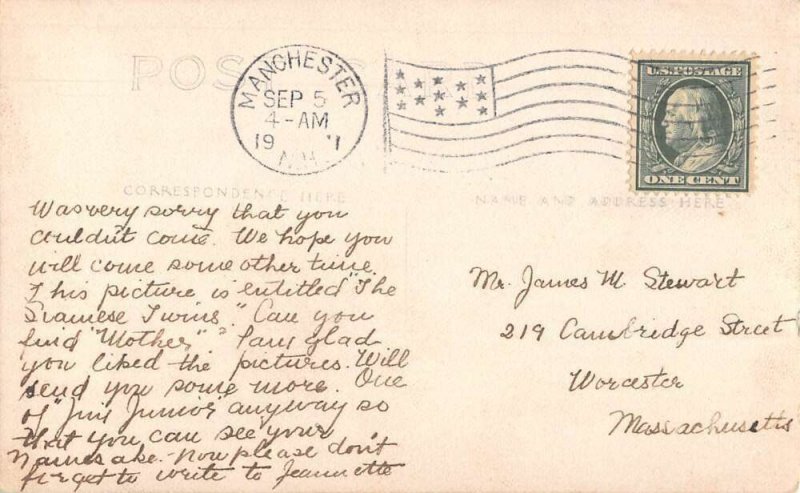 POST CARD
MANCHESTER
SEP 5
4-AM
19 11
N.H.
U.S. POSTAGE
ONE CENT
CORRESPONDENCE HERE
NAME AND ADDRESS HERE
Was very sorry that you
couldn't come. We hope you
will come some other time.
This picture is entitled "The
Siamese Twins." Can you
find "Mother"? I am glad
you liked the pictures. Will
send you some more. One
of "Jim Junior" anyway so
that you can see your
Namesake. - Now please don't
forget to write to Jeannette
Mr. James M Stewart
219 Cambridge Street
Worcester
Massachusetts